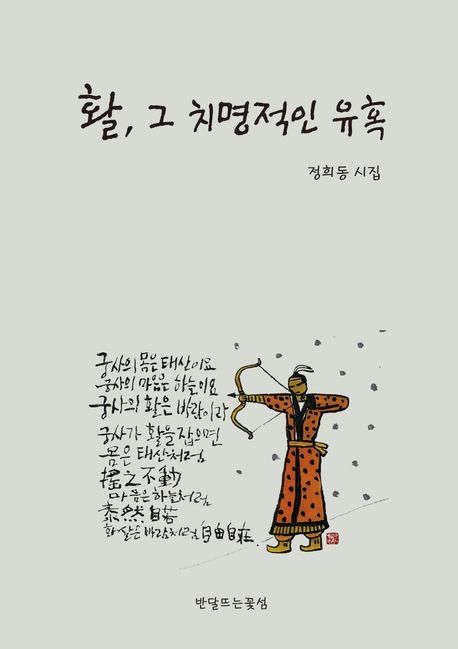 활, 그 치명적인 유혹
정희동 시집
궁사의 몸은 태산이요
궁사의 마음은 하늘이요
궁사의 활은 바람이라
궁사가 활을 잡으면
몸은 태산처럼
搖之不動
마음은 하늘처럼
泰然自若
화살은 바람처럼 自由自在.
반달뜨는꽃섬